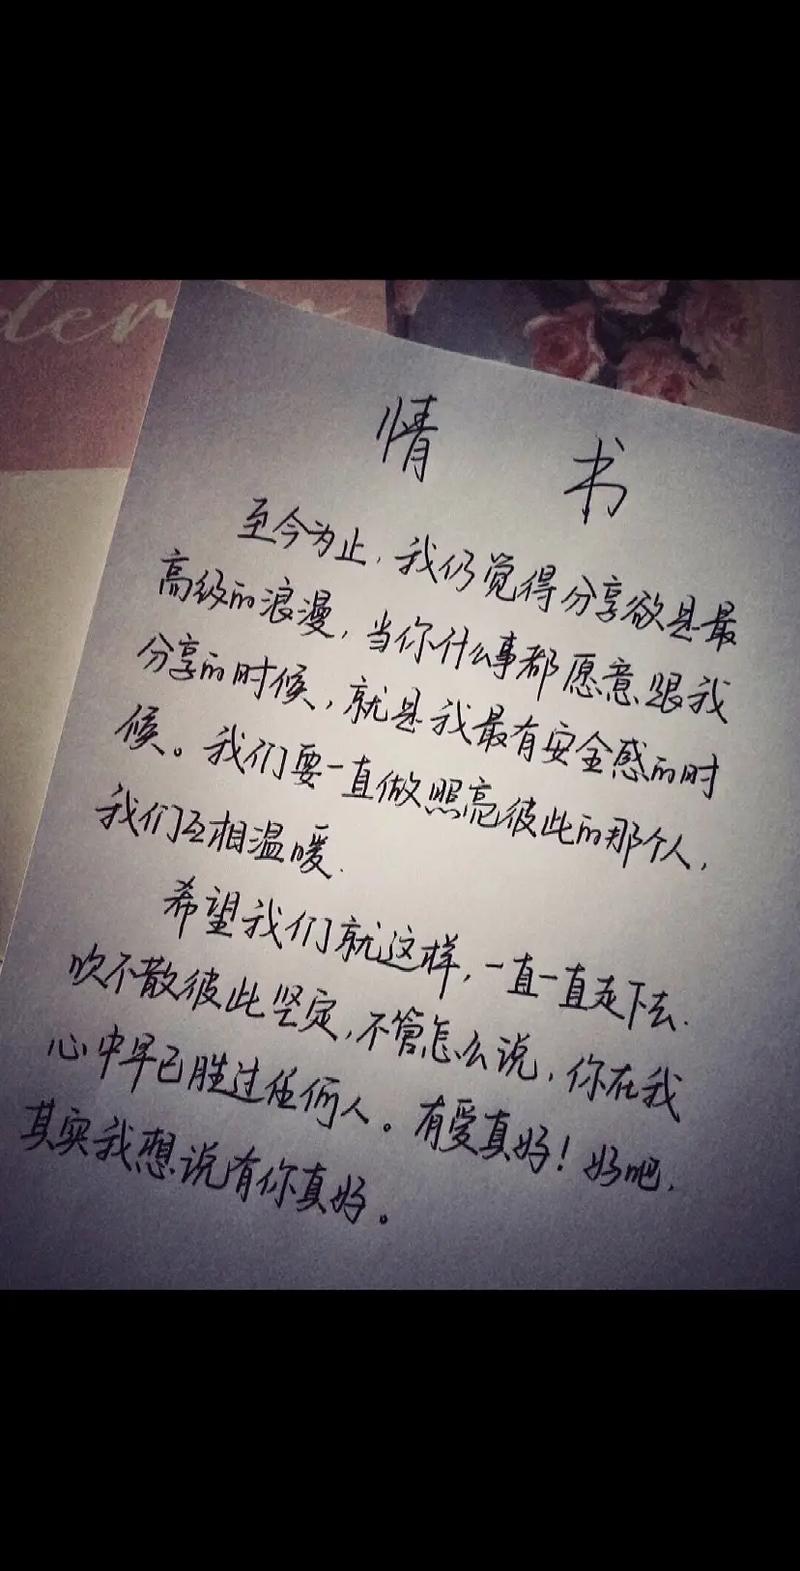 der
情 书
至今为止，我仍觉得分享欲是最
高级的浪漫，当你什么事都愿意跟我
分享的时候，就是我最有安全感的时
候。我们要一直做照亮彼此的那个人，
我们互相温暖.
希望我们就这样，一直一直走下去.
吹不散彼此坚定，不管怎么说，你在我
心中早已胜过任何人。有爱真好！好吧，
其实我想说有你真好。